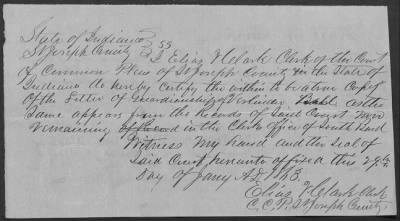 State of Indiana
St Joseph County } SS
I Elias V Clark Clerk of the Court
of Common Pleas of St Joseph County in the State of
Indiana do hereby certify the within to be a true Copy
of the Letter of Guardianship of as the
Same appears from the Records of said Court now
remaining in the Clerks office of South Bend
Witness my hand and the Seal of
Said Court hereunto affixed this 29th
Day of Jany A.D. 1863
Elias V Clark Clerk
C.C.P. St Joseph County